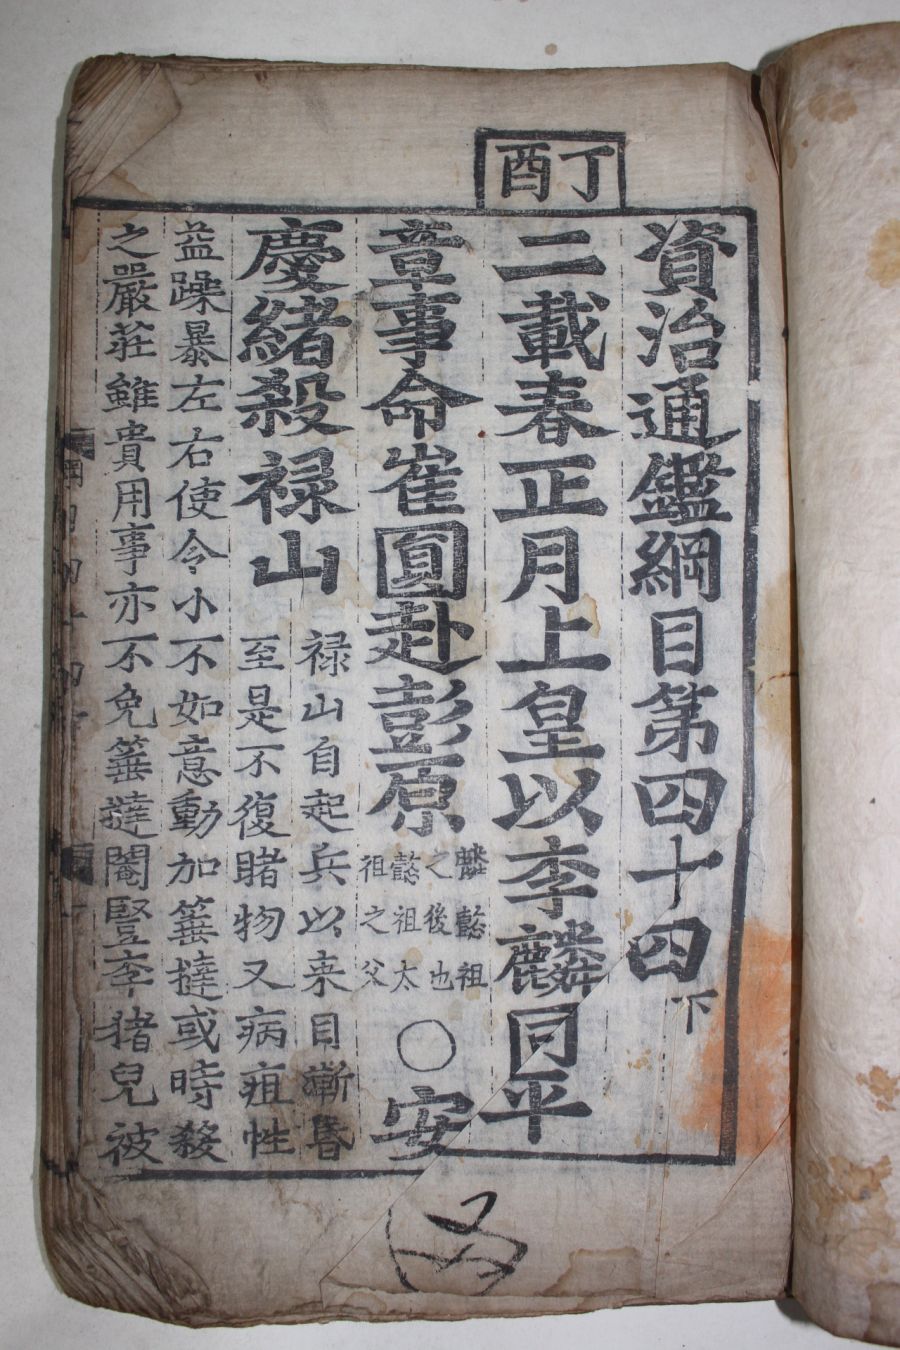 丁酉
資治通鑑綱目第四十四下
二載春正月上皇以李麟同平
章事命崔圓赴彭原
麟懿祖
之後也
懿祖太
祖之父
○安
慶緒殺禄山
禄山自起兵以来目漸昬
至是不復睹物又病疽性
益躁暴左右使令小不如意動加箠撻或時殺
之嚴荘雖貴用事亦不免箠撻閹豎李猪兒被